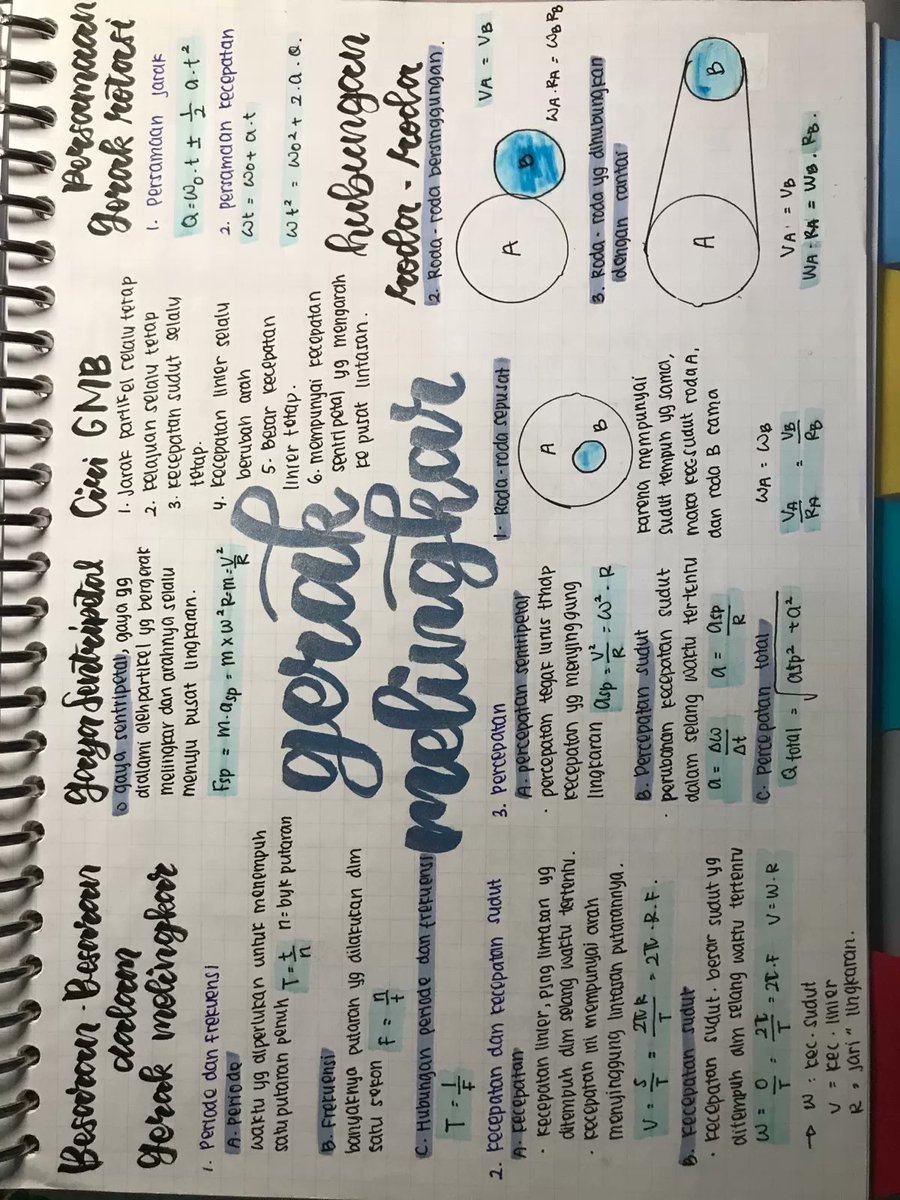 Besaran-Besaran
dalam
Gerak melingkar
1. Periode dan frekuensi
A. Periode
waktu yg diperlukan untuk menempuh
satu putaran penuh T = t/n n = byk putaran
B. Frekuensi
banyaknya putaran yg dilakukan dlm
satu sekon F = n/t
C. Hubungan periode dan frekuensi
T = 1/F
2. Kecepatan dan kecepatan sudut
A. Kecepatan
· Kecepatan linier, pjng lintasan yg
ditempuh dlm selang waktu tertentu.
· Kecepatan ini mempunyai arah
menyinggung lintasan putarannya.
V = S/T = 2πR/T = 2π.R.F.
B. Kecepatan sudut
· Kecepatan sudut. besar sudut yg
ditempuh dlm selang waktu tertentu
W = O/T = 2π/T = 2π.F V = W.R
→ W : Kec. sudut
V = Kec. linier
R = jari" lingkaran.
Gaya Sentripetal
○ gaya sentripetal, gaya yg
dialami oleh partikel yg bergerak
melingkar dan arahnya selalu
menuju pusat lingkaran.
Fsp = m.asp = m x ω² R = m = V²/R
gerak
melingkar
3. Percepatan
A. percepatan sentripetal
· percepatan tegak lurus trhdp
kecepatan yg menyinggung
lingkaran asp = V²/R = ω².R
B. Percepatan sudut
· perubahan kecepatan sudut
dalam selang waktu tertentu
a = Δω/Δt a = asp/R
C. Percepatan total
a total = √asp² + a²
Ciri GMB
1. Jarak partikel selalu tetap
2. Kelajuan selalu tetap
3. Kecepatan sudut selalu
tetap.
4. Kecepatan linier selalu
berubah arah
5. Besar kecepatan
linier tetap.
6. mempunyai kecepatan
sentripetal yg mengarah
ke pusat lintasan.
Persamaan
Gerak rotasi
1. Persamaan jarak
Q = ω₀.t ± 1/2 a.t²
2. Persamaan kecepatan
ωt = ω₀ + a.t
ωt² = ω₀² + 2.a.Q.
hubungan
Roda-Roda
1. Roda-roda sepusat
A
B
karena mempunyai
sudut tempuh yg sama,
maka kec.sudut roda A,
dan roda B sama
WA = WB
VA/RA = VB/RB
2. Roda-roda bersinggungan.
A
B
VA = VB
WA.RA = WB RB
3. Roda-roda yg dihubungkan
dengan rantai
A
B
VA. = VB
WA.RA = WB.RB.